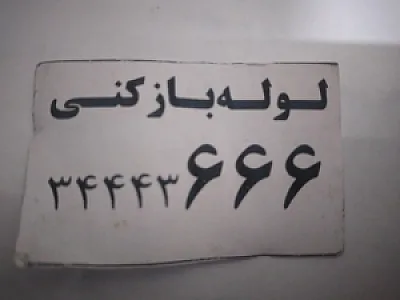 لوله بازکنی
۳۴۴۴۳۶۶۶